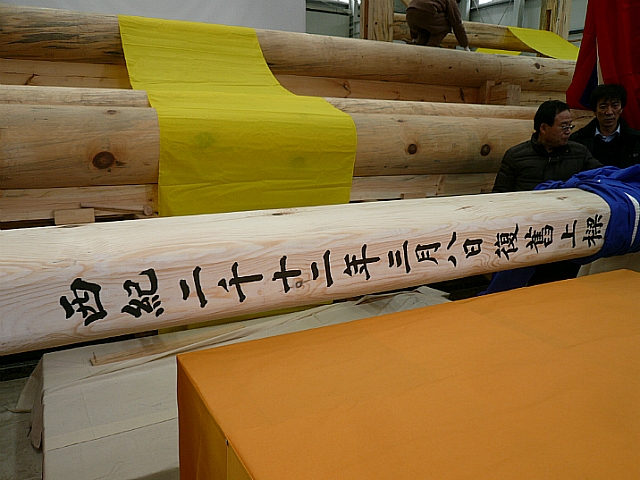 西紀二千十二年三月八日復舊上樑